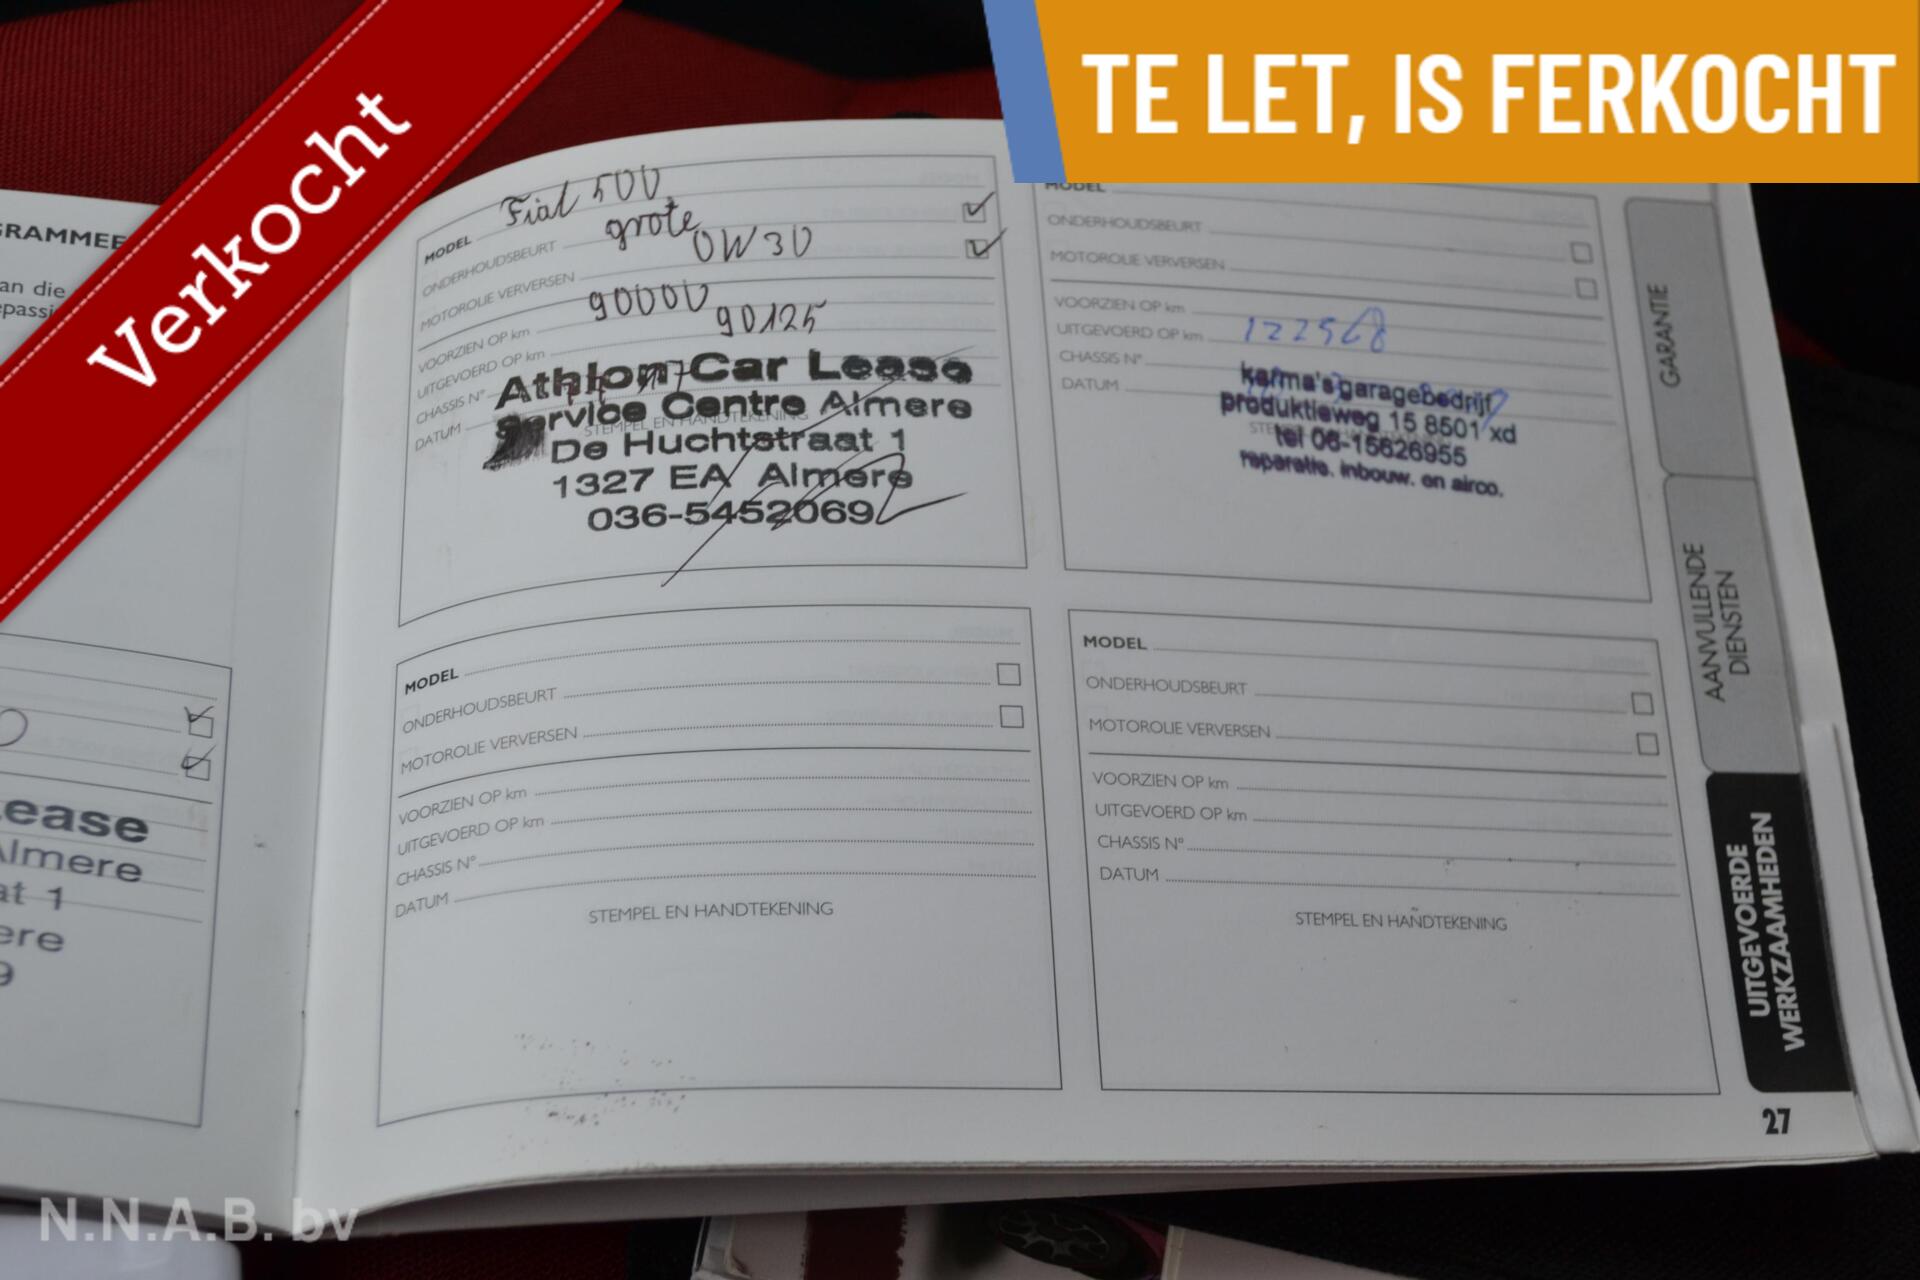 Verkocht
TE LET, IS FERKOCHT
GRAMMEE
an die
epassi
ease
Almere
at 1
ere
9
MODEL Fiat 500
ONDERHOUDSBEURT grote
MOTOROLIE VERVERSEN 0W30
VOORZIEN OP km 90000
UITGEVOERD OP km 90125
CHASSIS N°
DATUM
STEMPEL EN HANDTEKENING
Athlon Car Lease
Service Centre Almere
De Huchtstraat 1
1327 EA Almere
036-5452069
MODEL
ONDERHOUDSBEURT
MOTOROLIE VERVERSEN
VOORZIEN OP km
UITGEVOERD OP km 122568
CHASSIS N°
DATUM
karma's garagebedrijf
produktieweg 15 8501 xd
tel 06-15626955
reparatie. inbouw. en airco.
MODEL
ONDERHOUDSBEURT
MOTOROLIE VERVERSEN
VOORZIEN OP km
UITGEVOERD OP km
CHASSIS N°
DATUM
STEMPEL EN HANDTEKENING
MODEL
ONDERHOUDSBEURT
MOTOROLIE VERVERSEN
VOORZIEN OP km
UITGEVOERD OP km
CHASSIS N°
DATUM
STEMPEL EN HANDTEKENING
GARANTIE
AANVULLENDE
DIENSTEN
UITGEVOERDE
WERKZAAMHEDEN
27
N.N.A.B. bv